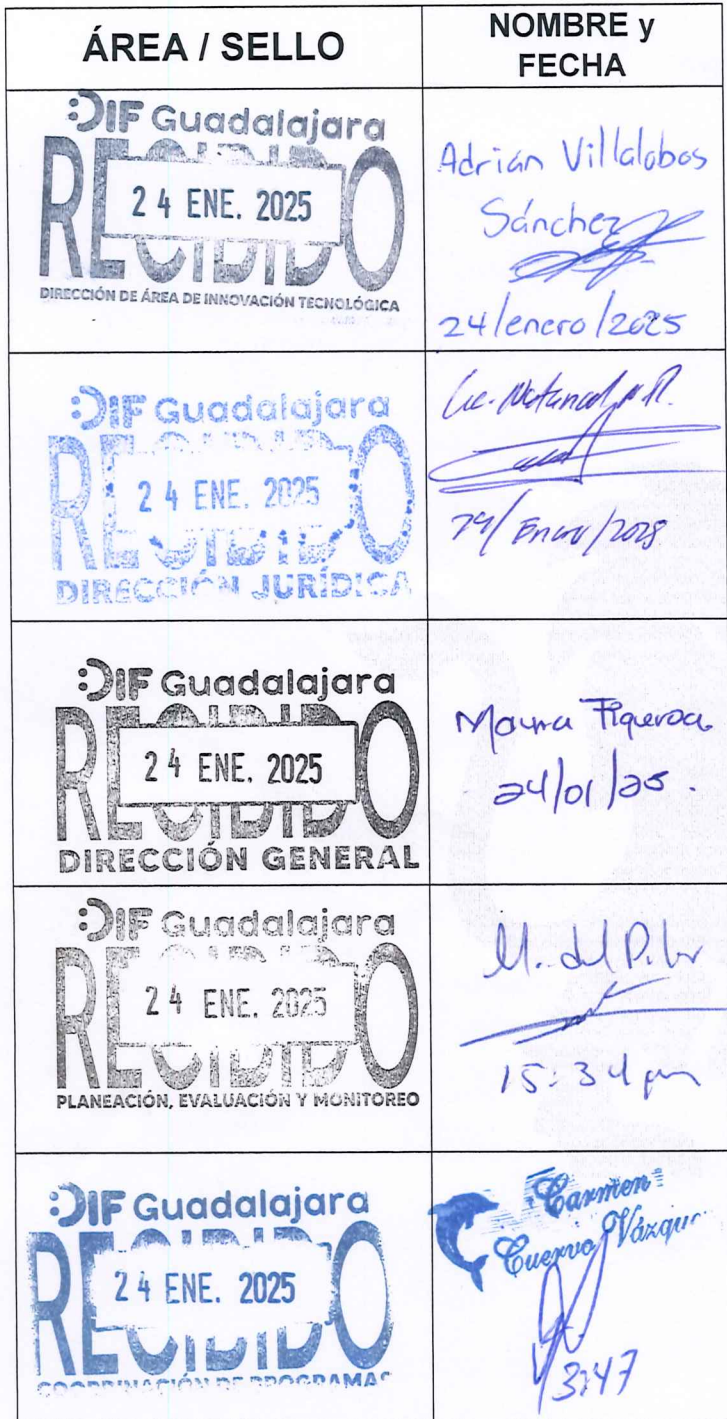 ÁREA / SELLO
NOMBRE y
FECHA
DIF Guadalajara
RECIBIDO
24 ENE. 2025
DIRECCIÓN DE ÁREA DE INNOVACIÓN TECNOLÓGICA
Adrián Villalobos
Sánchez
24/enero/2025
DIF Guadalajara
RECIBIDO
24 ENE. 2025
DIRECCIÓN JURÍDICA
Lic.
DIF Guadalajara
RECIBIDO
24 ENE. 2025
DIRECCIÓN GENERAL
Figueroa
24/01/25.
DIF Guadalajara
RECIBIDO
24 ENE. 2025
PLANEACIÓN, EVALUACIÓN Y MONITOREO
M. del Pilar
15:34 pm
DIF Guadalajara
RECIBIDO
24 ENE. 2025
COORDINACIÓN DE PROGRAMAS
Carmen
Cuervo Vázquez